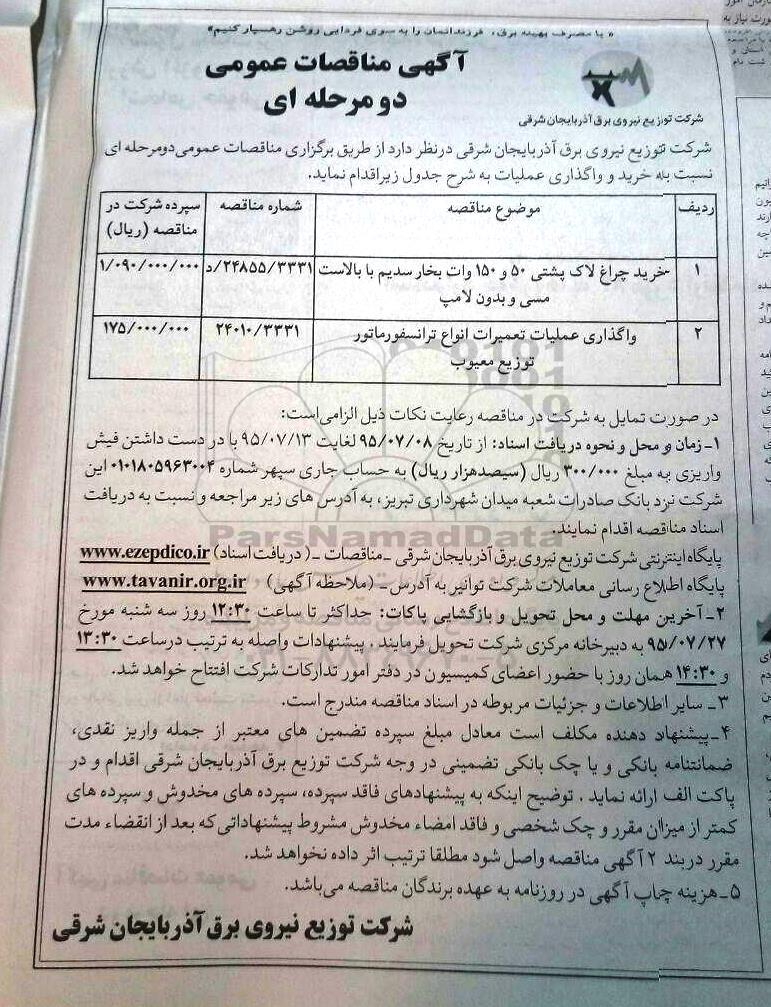 «با مصرف بهینه برق، فرزندانمان را به سوی فردایی روشن رهسپار کنیم»
آگهی مناقصات عمومی
دو مرحله ای
شرکت توزیع نیروی برق آذربایجان شرقی
شرکت توزیع نیروی برق آذربایجان شرقی درنظر دارد از طریق برگزاری مناقصات عمومی دومرحله ای
نسبت به خرید و واگذاری عملیات به شرح جدول زیر اقدام نماید.
ردیف موضوع مناقصه شماره مناقصه سپرده شرکت در
مناقصه (ریال)
۱ خرید چراغ لاک پشتی ۵۰ و ۱۵۰ وات بخار سدیم با بالاست ۲۴۸۵۵/۳۳۳۱/د ۱/۰۹۰/۰۰۰/۰۰۰
مسی و بدون لامپ
۲ واگذاری عملیات تعمیرات انواع ترانسفورماتور ۲۴۰۱۰/۳۳۳۱ ۱۷۵/۰۰۰/۰۰۰
توزیع معیوب
در صورت تمایل به شرکت در مناقصه رعایت نکات ذیل الزامی است:
۱ـ زمان و محل و نحوه دریافت اسناد: از تاریخ ۹۵/۰۷/۰۸ لغایت ۹۵/۰۷/۱۳ با در دست داشتن فیش
واریزی به مبلغ ۳۰۰/۰۰۰ ریال (سیصدهزار ریال) به حساب جاری سپهر شماره ۰۱۰۱۸۰۵۹۶۳۰۰۴ این
شرکت نزد بانک صادرات شعبه میدان شهرداری تبریز، به آدرس های زیر مراجعه و نسبت به دریافت
اسناد مناقصه اقدام نمایند.
پایگاه اینترنتی شرکت توزیع نیروی برق آذربایجان شرقی ـ مناقصات ـ (دریافت اسناد) www.ezepdico.ir
پایگاه اطلاع رسانی معاملات شرکت توانیر به آدرس ـ (ملاحظه آگهی) www.tavanir.org.ir
۲ـ آخرین مهلت و محل تحویل و بازگشایی پاکات: حداکثر تا ساعت ۱۲:۳۰ روز سه شنبه مورخ
۹۵/۰۷/۲۷ به دبیرخانه مرکزی شرکت تحویل فرمایند. پیشنهادات واصله به ترتیب درساعت ۱۳:۳۰
و ۱۴:۳۰ همان روز با حضور اعضای کمیسیون در دفتر امور تدارکات شرکت افتتاح خواهد شد.
۳ـ سایر اطلاعات و جزئیات مربوطه در اسناد مناقصه مندرج است.
۴ـ پیشنهاد دهنده مکلف است معادل مبلغ سپرده تضمین های معتبر از جمله واریز نقدی،
ضمانتنامه بانکی و یا چک بانکی تضمینی در وجه شرکت توزیع برق آذربایجان شرقی اقدام و در
پاکت الف ارائه نماید. توضیح اینکه به پیشنهادهای فاقد سپرده، سپرده های مخدوش و سپرده های
کمتر از میزان مقرر و چک شخصی و فاقد امضاء مخدوش مشروط پیشنهاداتی که بعد از انقضاء مدت
مقرر دربند ۲ آگهی مناقصه واصل شود مطلقا ترتیب اثر داده نخواهد شد.
۵ـ هزینه چاپ آگهی در روزنامه به عهده برندگان مناقصه می باشد.
شرکت توزیع نیروی برق آذربایجان شرقی
ParsNamadData